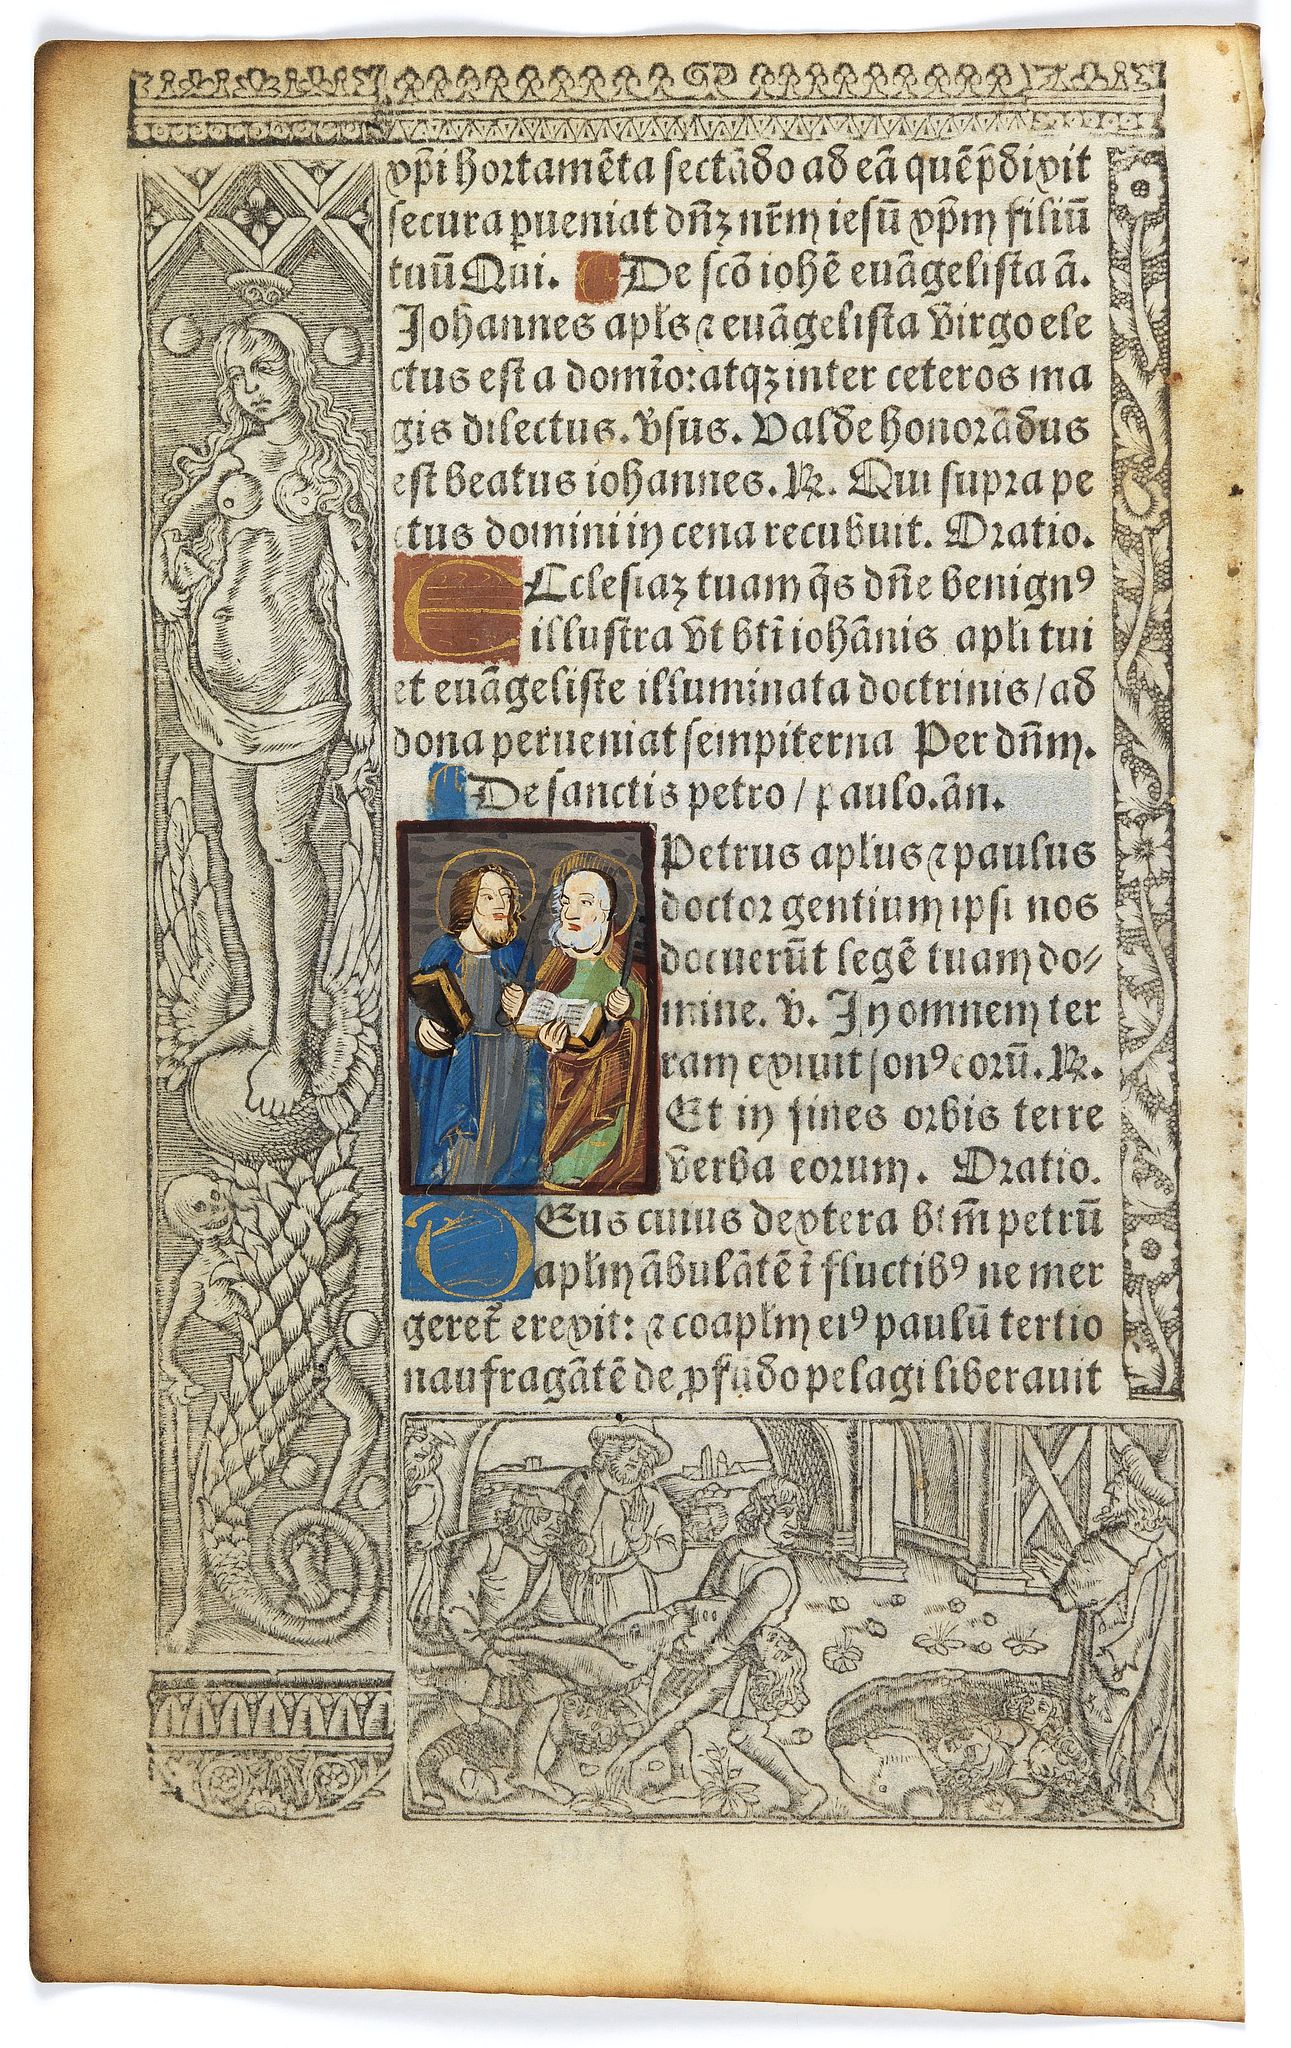 xp̄i hortamēta sectādo ad eā quē p̄dixit
secura ꝑueniat dn̄ꝫ nr̄m iesū xp̄m filiū
tuū Qui. C De scō iohē euāgelista ā.
Johannes apl̄s ⁊ euāgelista v̄irgo ele
ctus est a domīo: atqꝫ inter ceteros ma
gis dilectus. v̄sus. Valde honorādus
est beatus iohannes. ℟. Qui supra pe
ctus domini in cena recubuit. Oratio.
ECclesiaꝫ tuam q̄s dn̄e benignꝰ
illustra v̄t bt̄i iohānis apl̄i tui
et euāgeliste illuminata doctrinis / ad
dona perueniat sempiterna Per dn̄m.
C De sanctis petro / paulo. ān.
Petrus apl̄us ⁊ paulus
doctor gentium ipsi nos
docuerūt legē tuam do⸗
mine. v̄. In omnem ter
ram exiuit sonꝰ eorū. ℟.
Et in fines orbis terre
v̄erba eorum. Oratio.
DEus cuius dextera bt̄m̄ petrū
apl̄m ābulātē ī fluctibꝰ ne mer
geret̄ erexit: ⁊ coapl̄m eiꝰ paulū tertio
naufragātē de ꝓfūdo pelagi liberauit